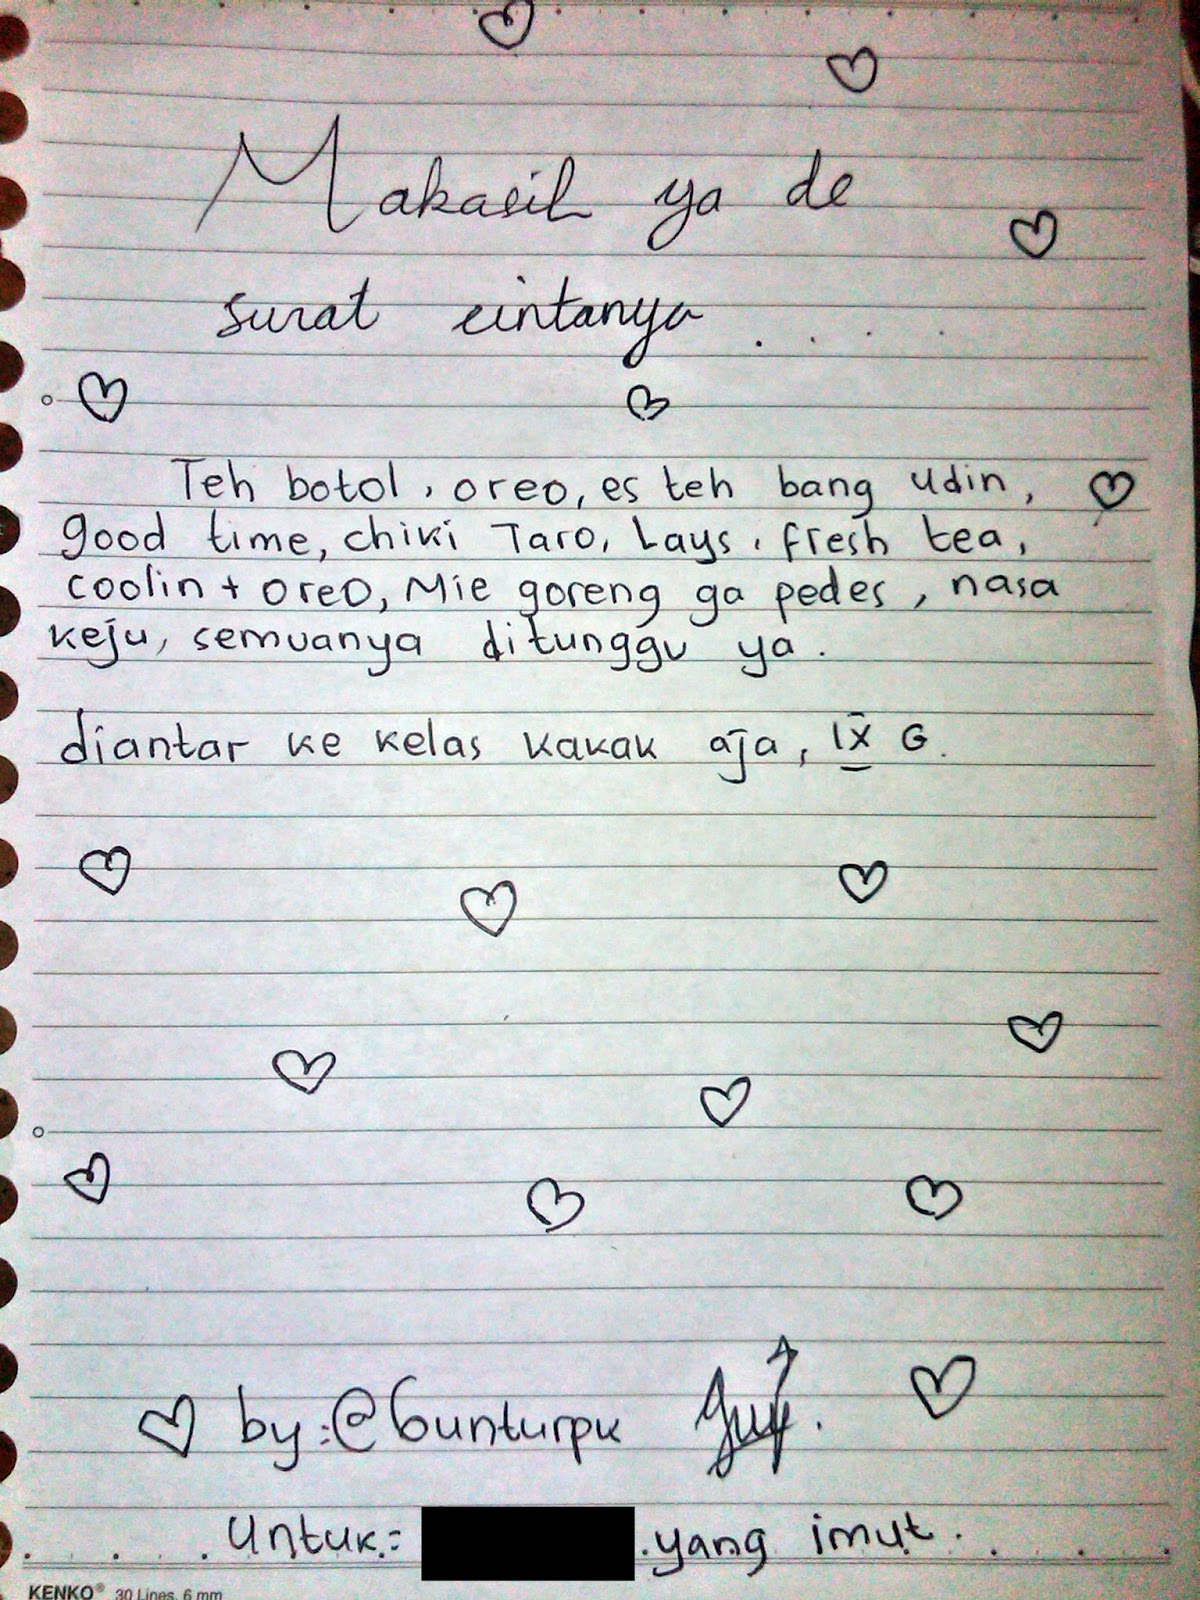 Makasih ya de
surat cintanya . . . .
Teh botol, oreo, es teh bang udin,
good time, chiki Taro, Lays, fresh tea,
coolin + oreo, Mie goreng ga pedes, nasa
keju, semuanya ditunggu ya.
diantar ke kelas kakak aja, IX G.
by: @Gunturpk
Untuk: yang imut.
KENKO® 30 Lines, 6 mm